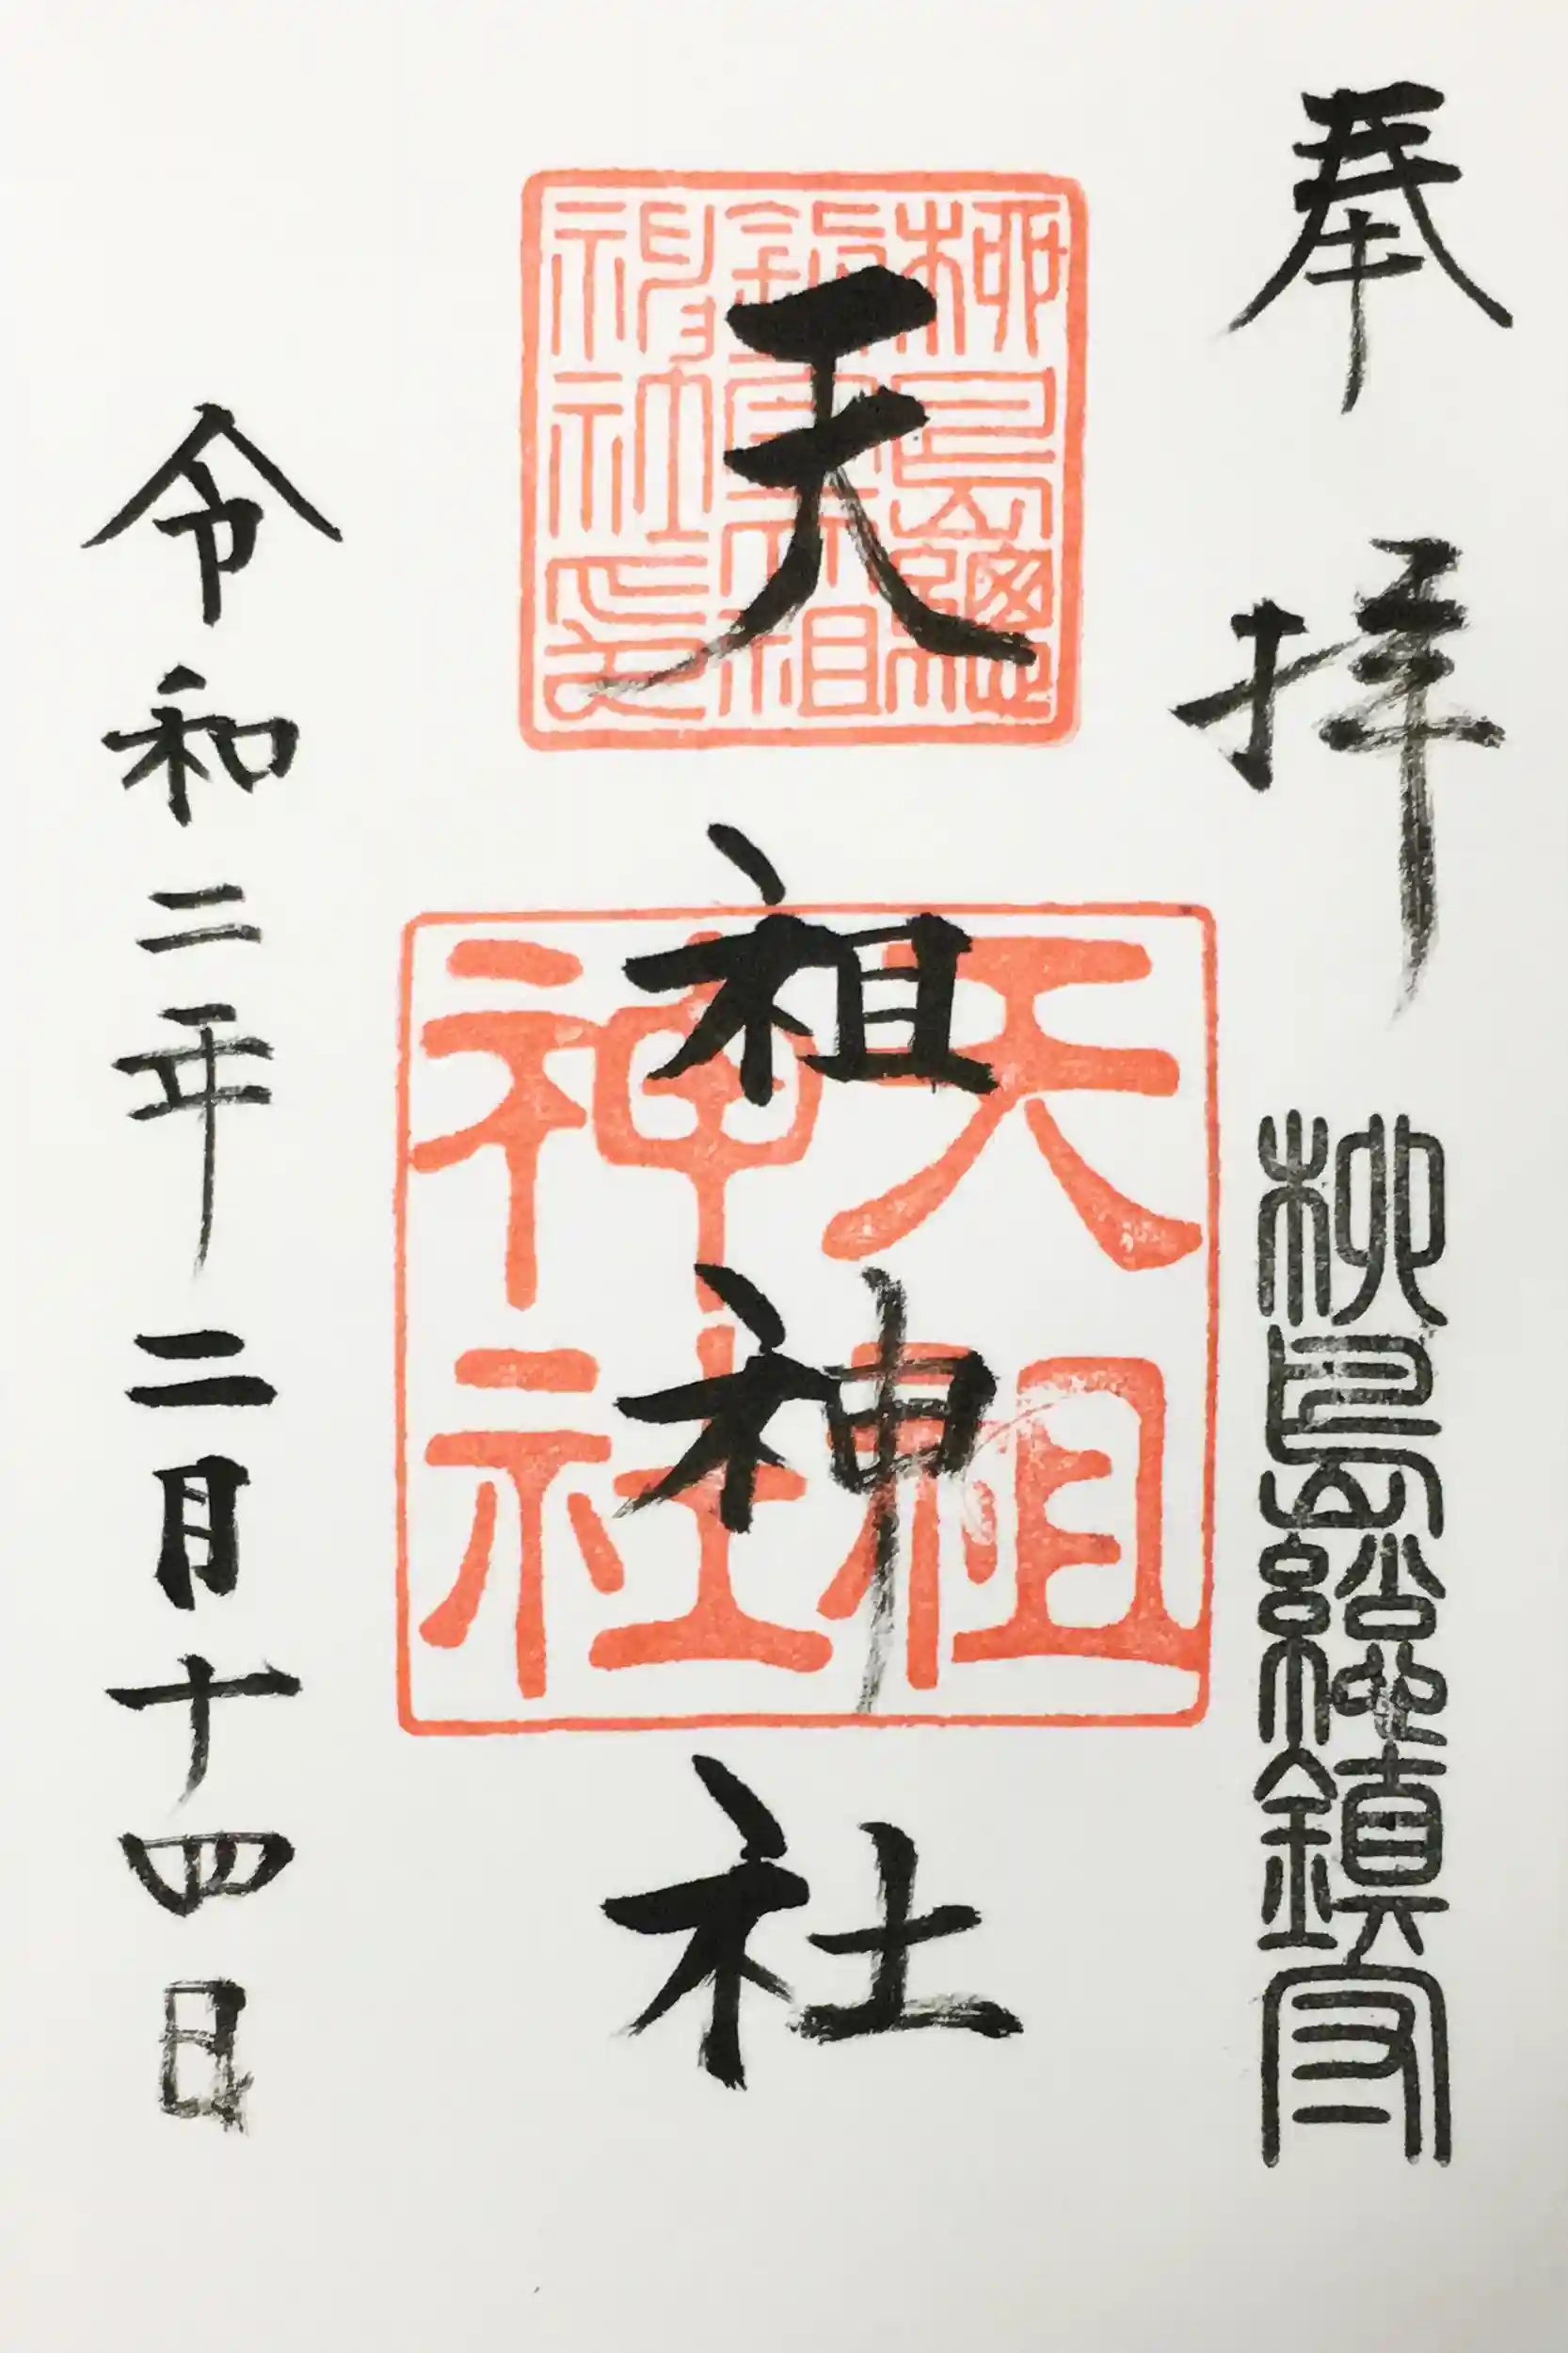 奉拝
柳島総鎮守
天祖神社
柳島總
鎮守天祖
神社印
天祖
神社
令和二年二月十四日